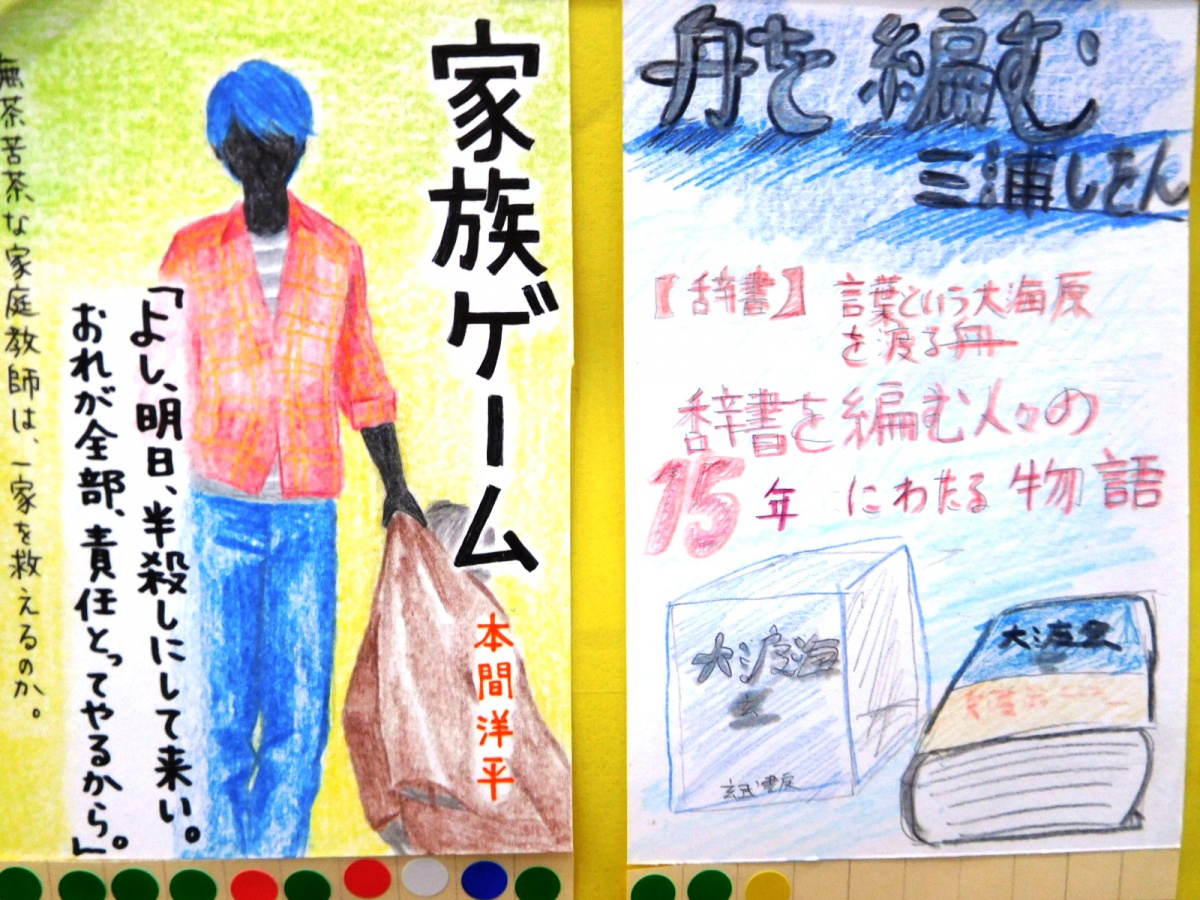 家族ゲーム
本間洋平
「よし、明日、半殺しにして来い。
おれが全部、責任とってやるから」。
無茶苦茶な家庭教師は、一家を救えるのか。
舟を編む
三浦しをん
【辞書】 言葉という大海原
を渡る舟
辞書を編む人々の
15年にわたる物語
大渡海
玄武書房
大渡海